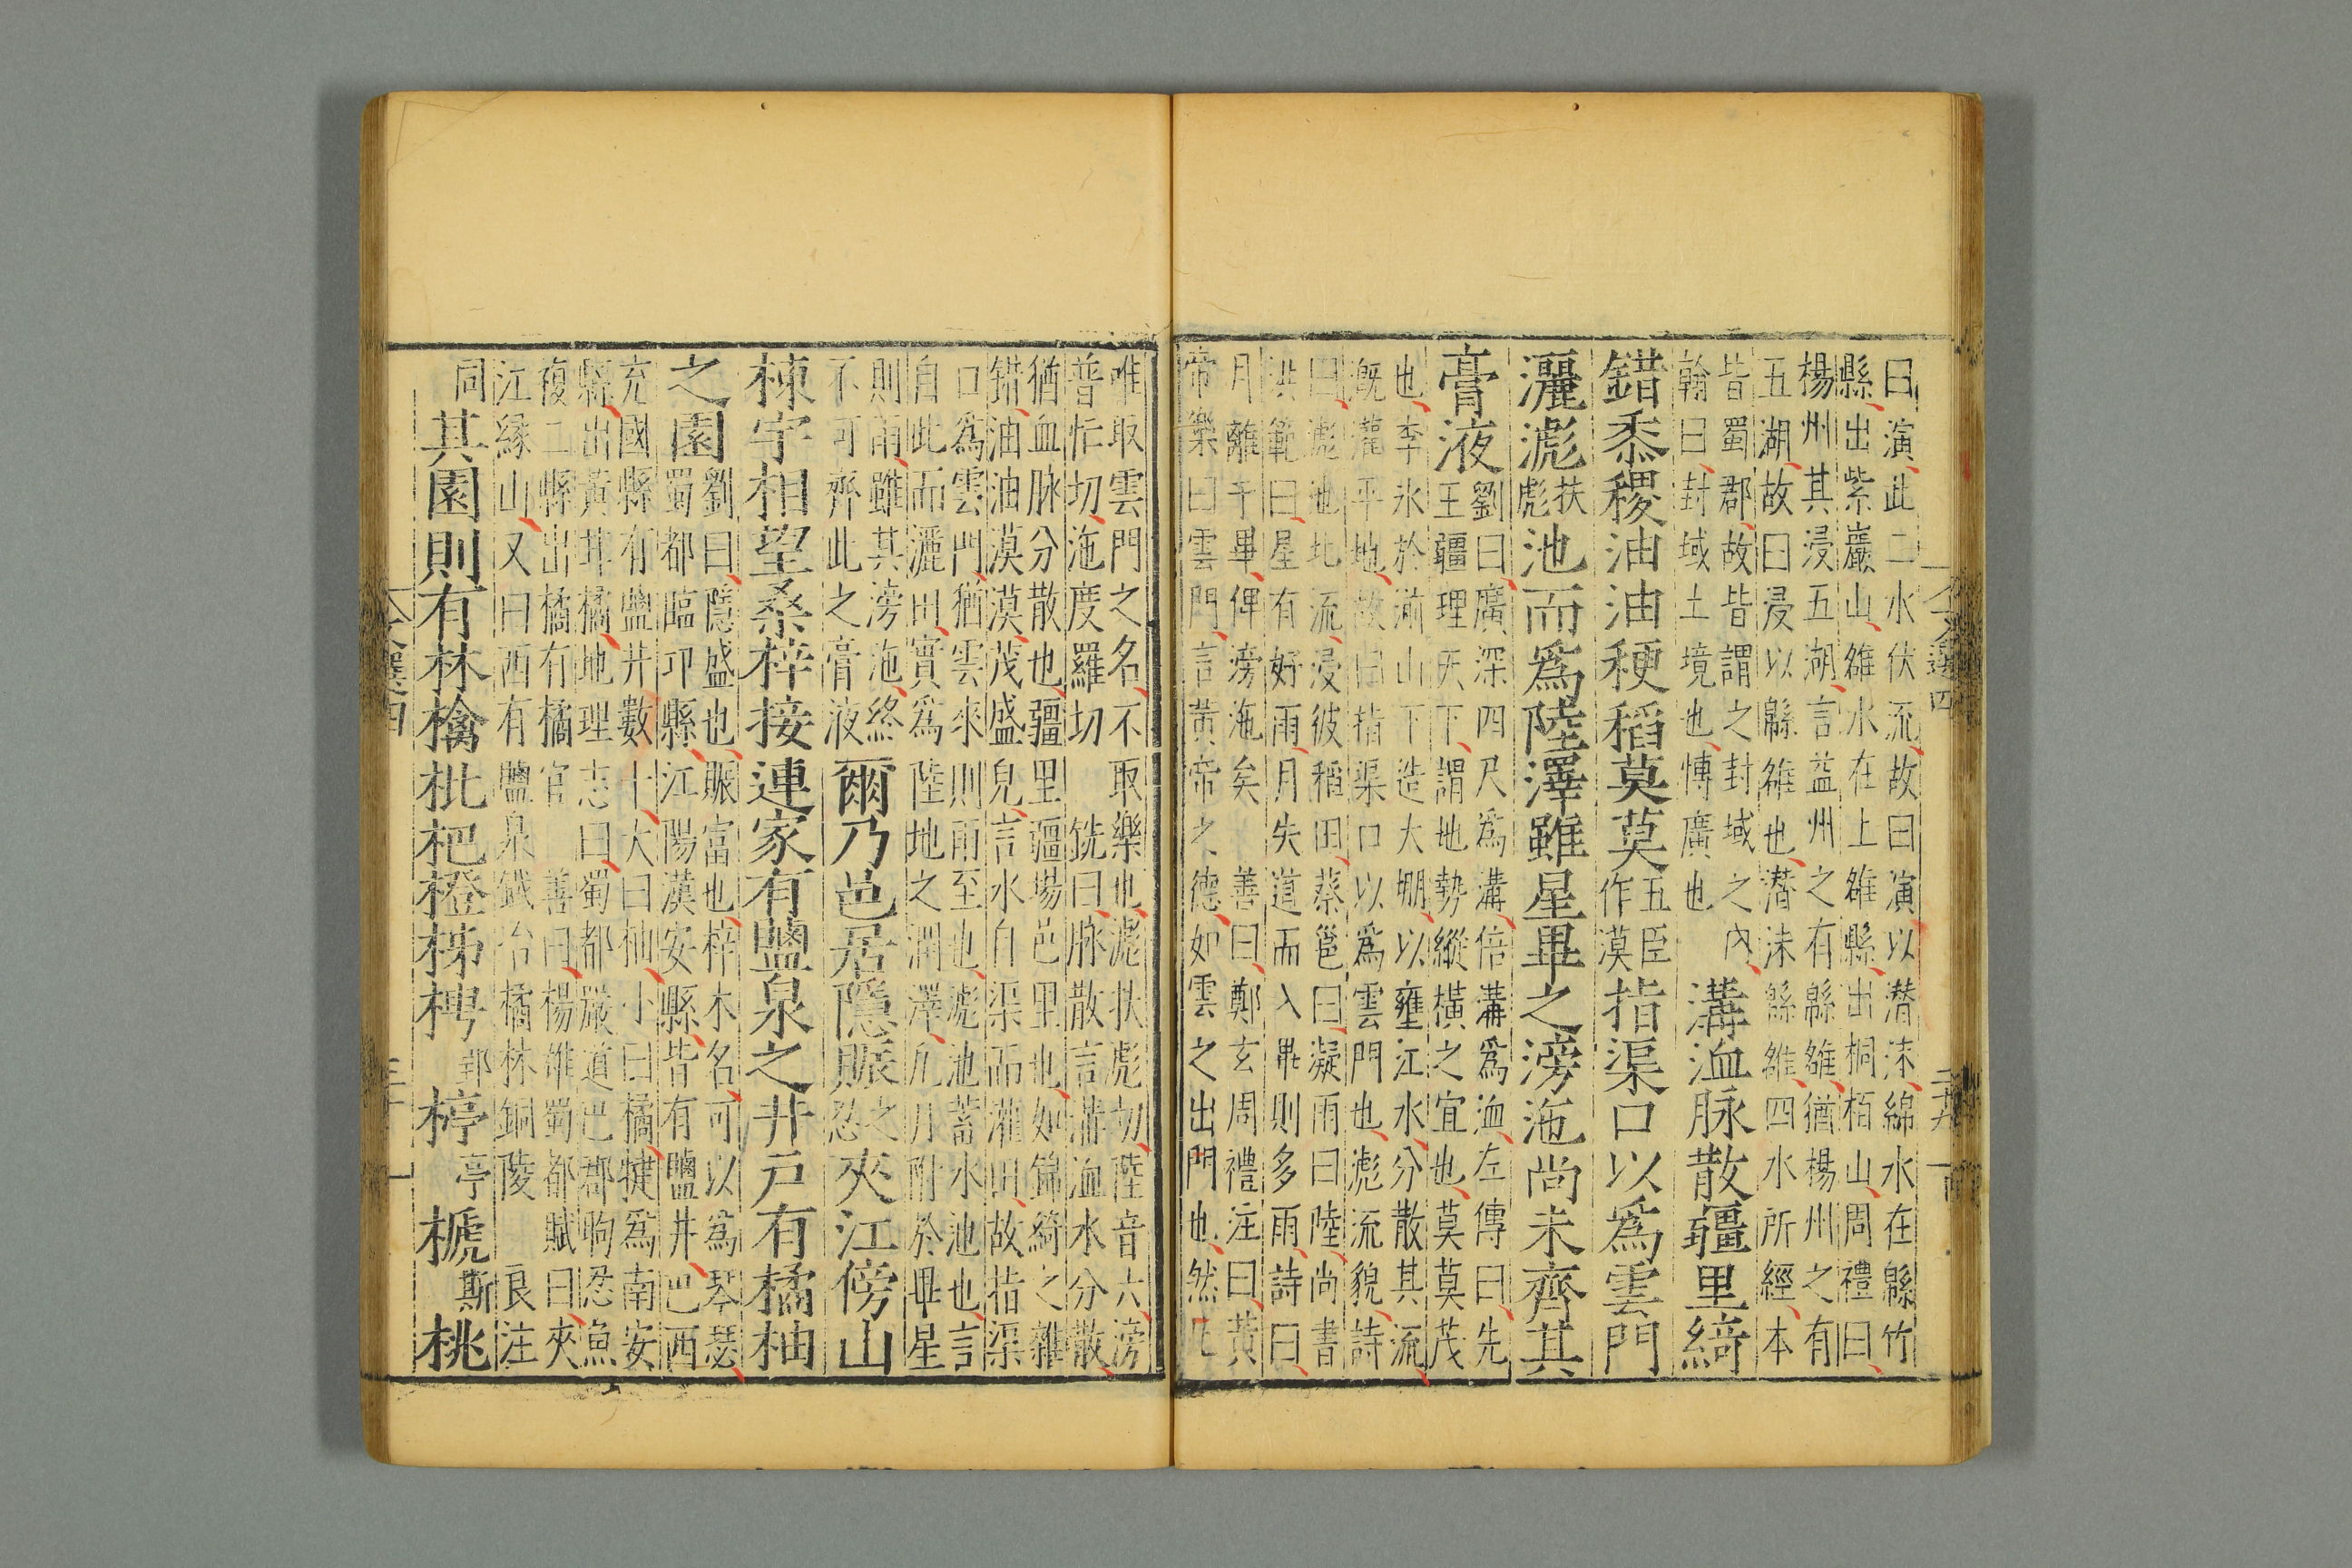 曰演此二水伏流故曰演以潜沬綿水在緜竹
縣出紫巖山雒水在上雒縣出桐栢山周禮曰
楊州其浸五湖言益州之有緜雒猶楊州之有
五湖故曰浸以緜雒也潜沬緜雒四水所經本
皆蜀郡故皆謂之封域之內
翰曰封域土境也博廣也
溝洫脉散疆里綺
錯黍稷油油稉稻莫莫
五臣
作漠
指渠口以爲雲門
灑滮
扶
彪
池而爲陸澤雖星畢之滂沲尚未齊其
膏液
劉曰廣深四尺爲溝倍溝爲洫左傳曰先
王疆理天下謂地勢縱橫之宜也莫莫茂
也李氷於湔山下造大堋以壅江水分散其流
漑灌平地故曰指渠口以爲雲門也滮流貌詩
曰滮池北流浸彼稻田蔡邕曰凝雨曰陸尚書
洪範曰星有好雨月失道而入畢則多雨詩曰
月離于畢俾滂沲矣 善曰鄭玄周禮注曰黃
帝樂曰雲門言黃帝之德如雲之出門也然
唯取雲門之名不取樂也滮扶彪切陸音六滂
普忙切沲度羅切 銑曰脉散言溝洫水分散
猶血脉分散也疆里疆場邑里也如錦綺之雜
錯油油漠漠茂盛皃言水自渠而灌田故指渠
口爲雲門猶雲來則雨至也滮池蓄水池也言
自此而灑田實爲陸地之潤澤凡月附於畢星
則雨雖其滂沲終
不可齊此之膏液
爾乃邑居隱賑
之
忍
夾江傍山
棟宇相望桑梓接連家有鹽泉之井戸有橘柚
之園
劉曰隱盛也賑富也梓木名可以爲琴瑟
蜀都臨卭縣江陽漢安縣皆有鹽井巴西
充國縣有鹽井數十大曰柚小曰橘犍爲南安
縣出黃甘橘地理志曰蜀都嚴道巴郡朐忍魚
複二縣出橘有橘官 善曰楊雄蜀都賦曰夾
江緣山又曰西有鹽泉鐵冶橘林銅陵 良注
同
其園則有林檎枇杷橙柹梬
郢
楟
亭
榹
斯
桃